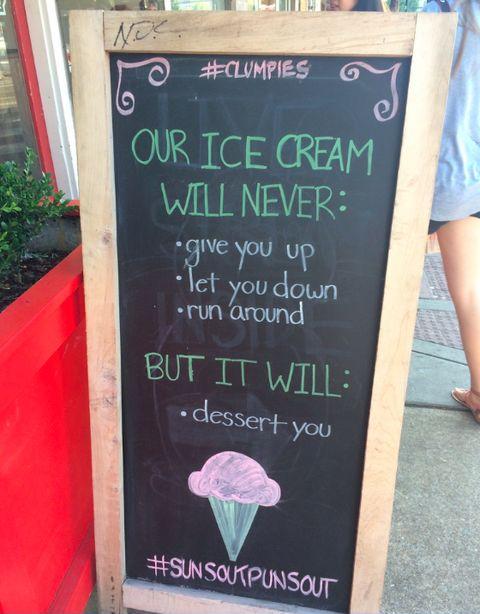 NDC.
#CLUMPIES
OUR ICE CREAM
WILL NEVER:
• give you up
• let you down
• run around
BUT IT WILL:
• dessert you
#SUNSOUTPUNSOUT